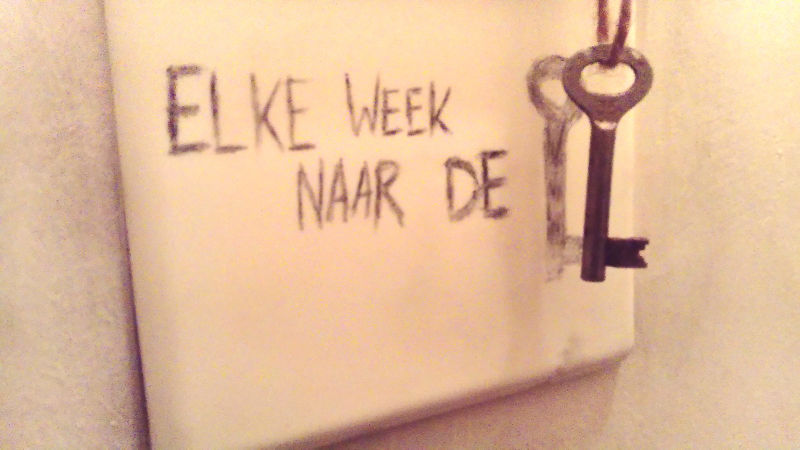 ELKE WEEK
NAAR DE